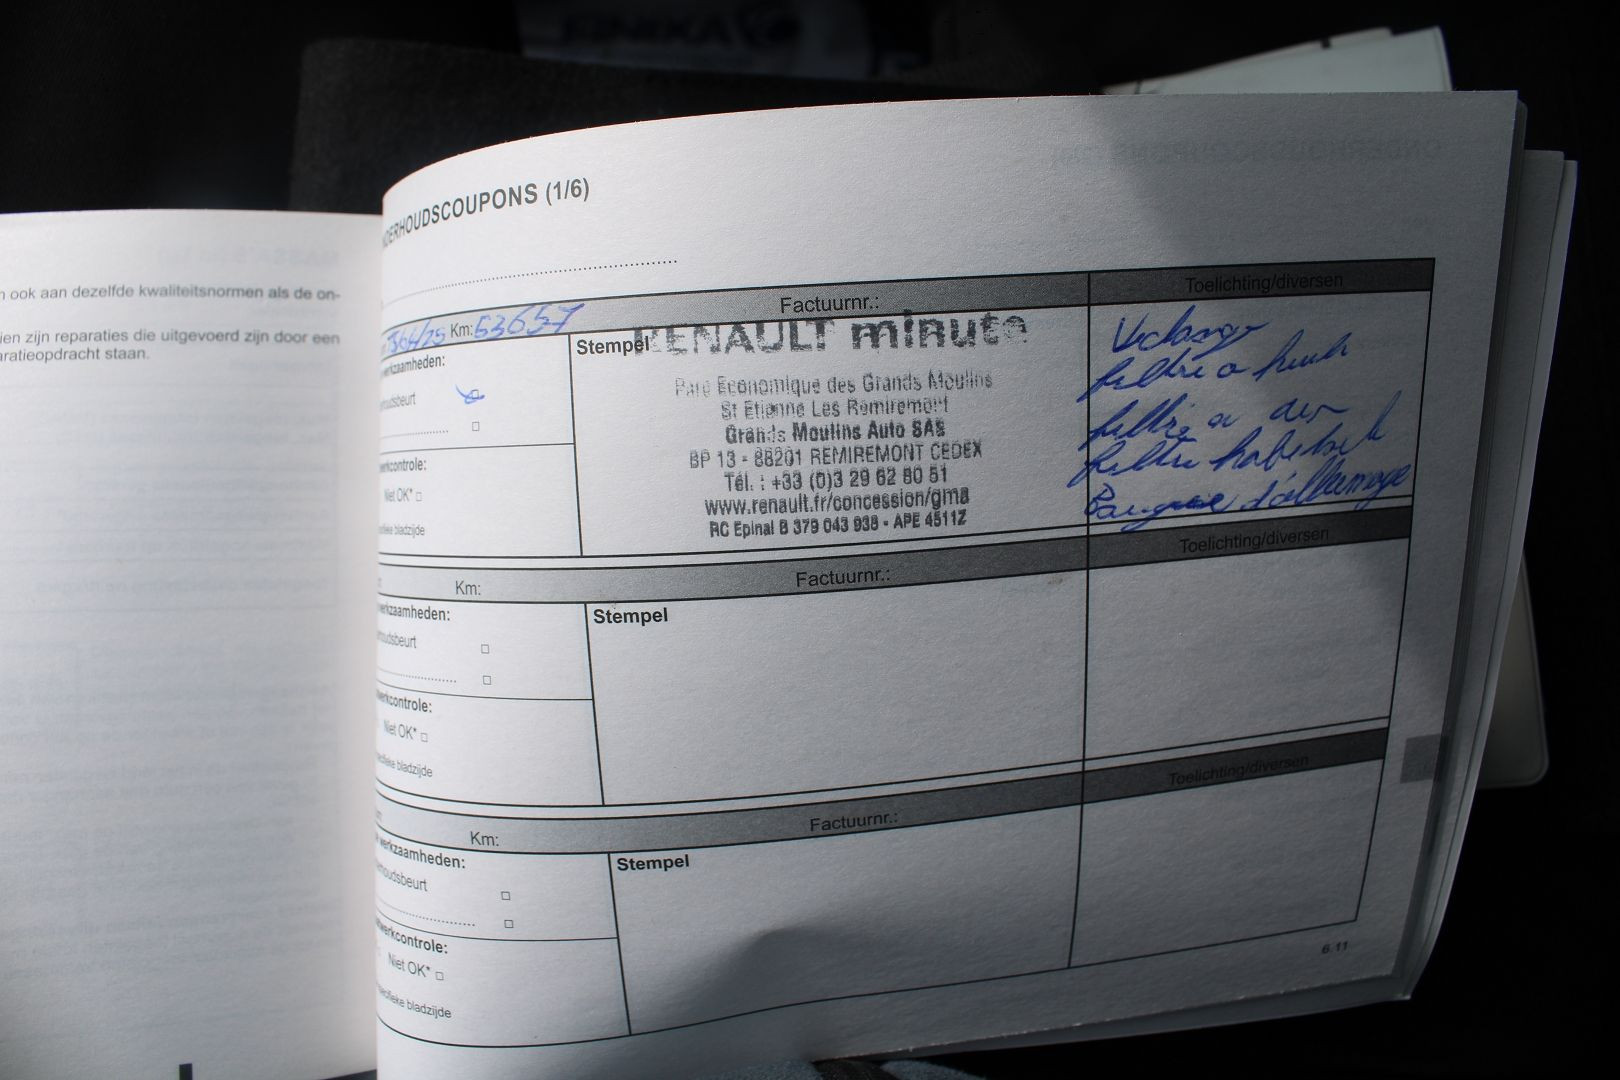 n ook aan dezelfde kwaliteitsnormen als de on-
ien zijn reparaties die uitgevoerd zijn door een
aratieopdracht staan.
NDERHOUDSCOUPONS (1/6)
Km: 53657 Factuurnr.: Toelichting/diversen
werkzaamheden:
houdsbeurt
werkcontrole:
Niet OK* □
specifieke bladzijde
Stempel
RENAULT minute
Parc Economique des Grands Moulins
St Etienne Les Remiremont
Grands Moulins Auto SAS
BP 13 - 88201 REMIREMONT CEDEX
Tél. : +33 (0)3 29 62 80 51
www.renault.fr/concession/gma
RC Epinal B 379 043 938 - APE 4511Z
Vidange
filtre a huile
filtre a air
filtre habitacle
d'allumage
Km: Factuurnr.: Toelichting/diversen
werkzaamheden:
houdsbeurt □
□
werkcontrole:
Niet OK* □
specifieke bladzijde
Stempel
Km: Factuurnr.: Toelichting/diversen
werkzaamheden:
houdsbeurt □
□
werkcontrole:
Niet OK* □
specifieke bladzijde
Stempel
6.11